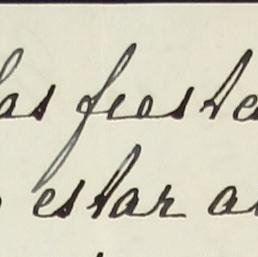 las fiesta
estar a